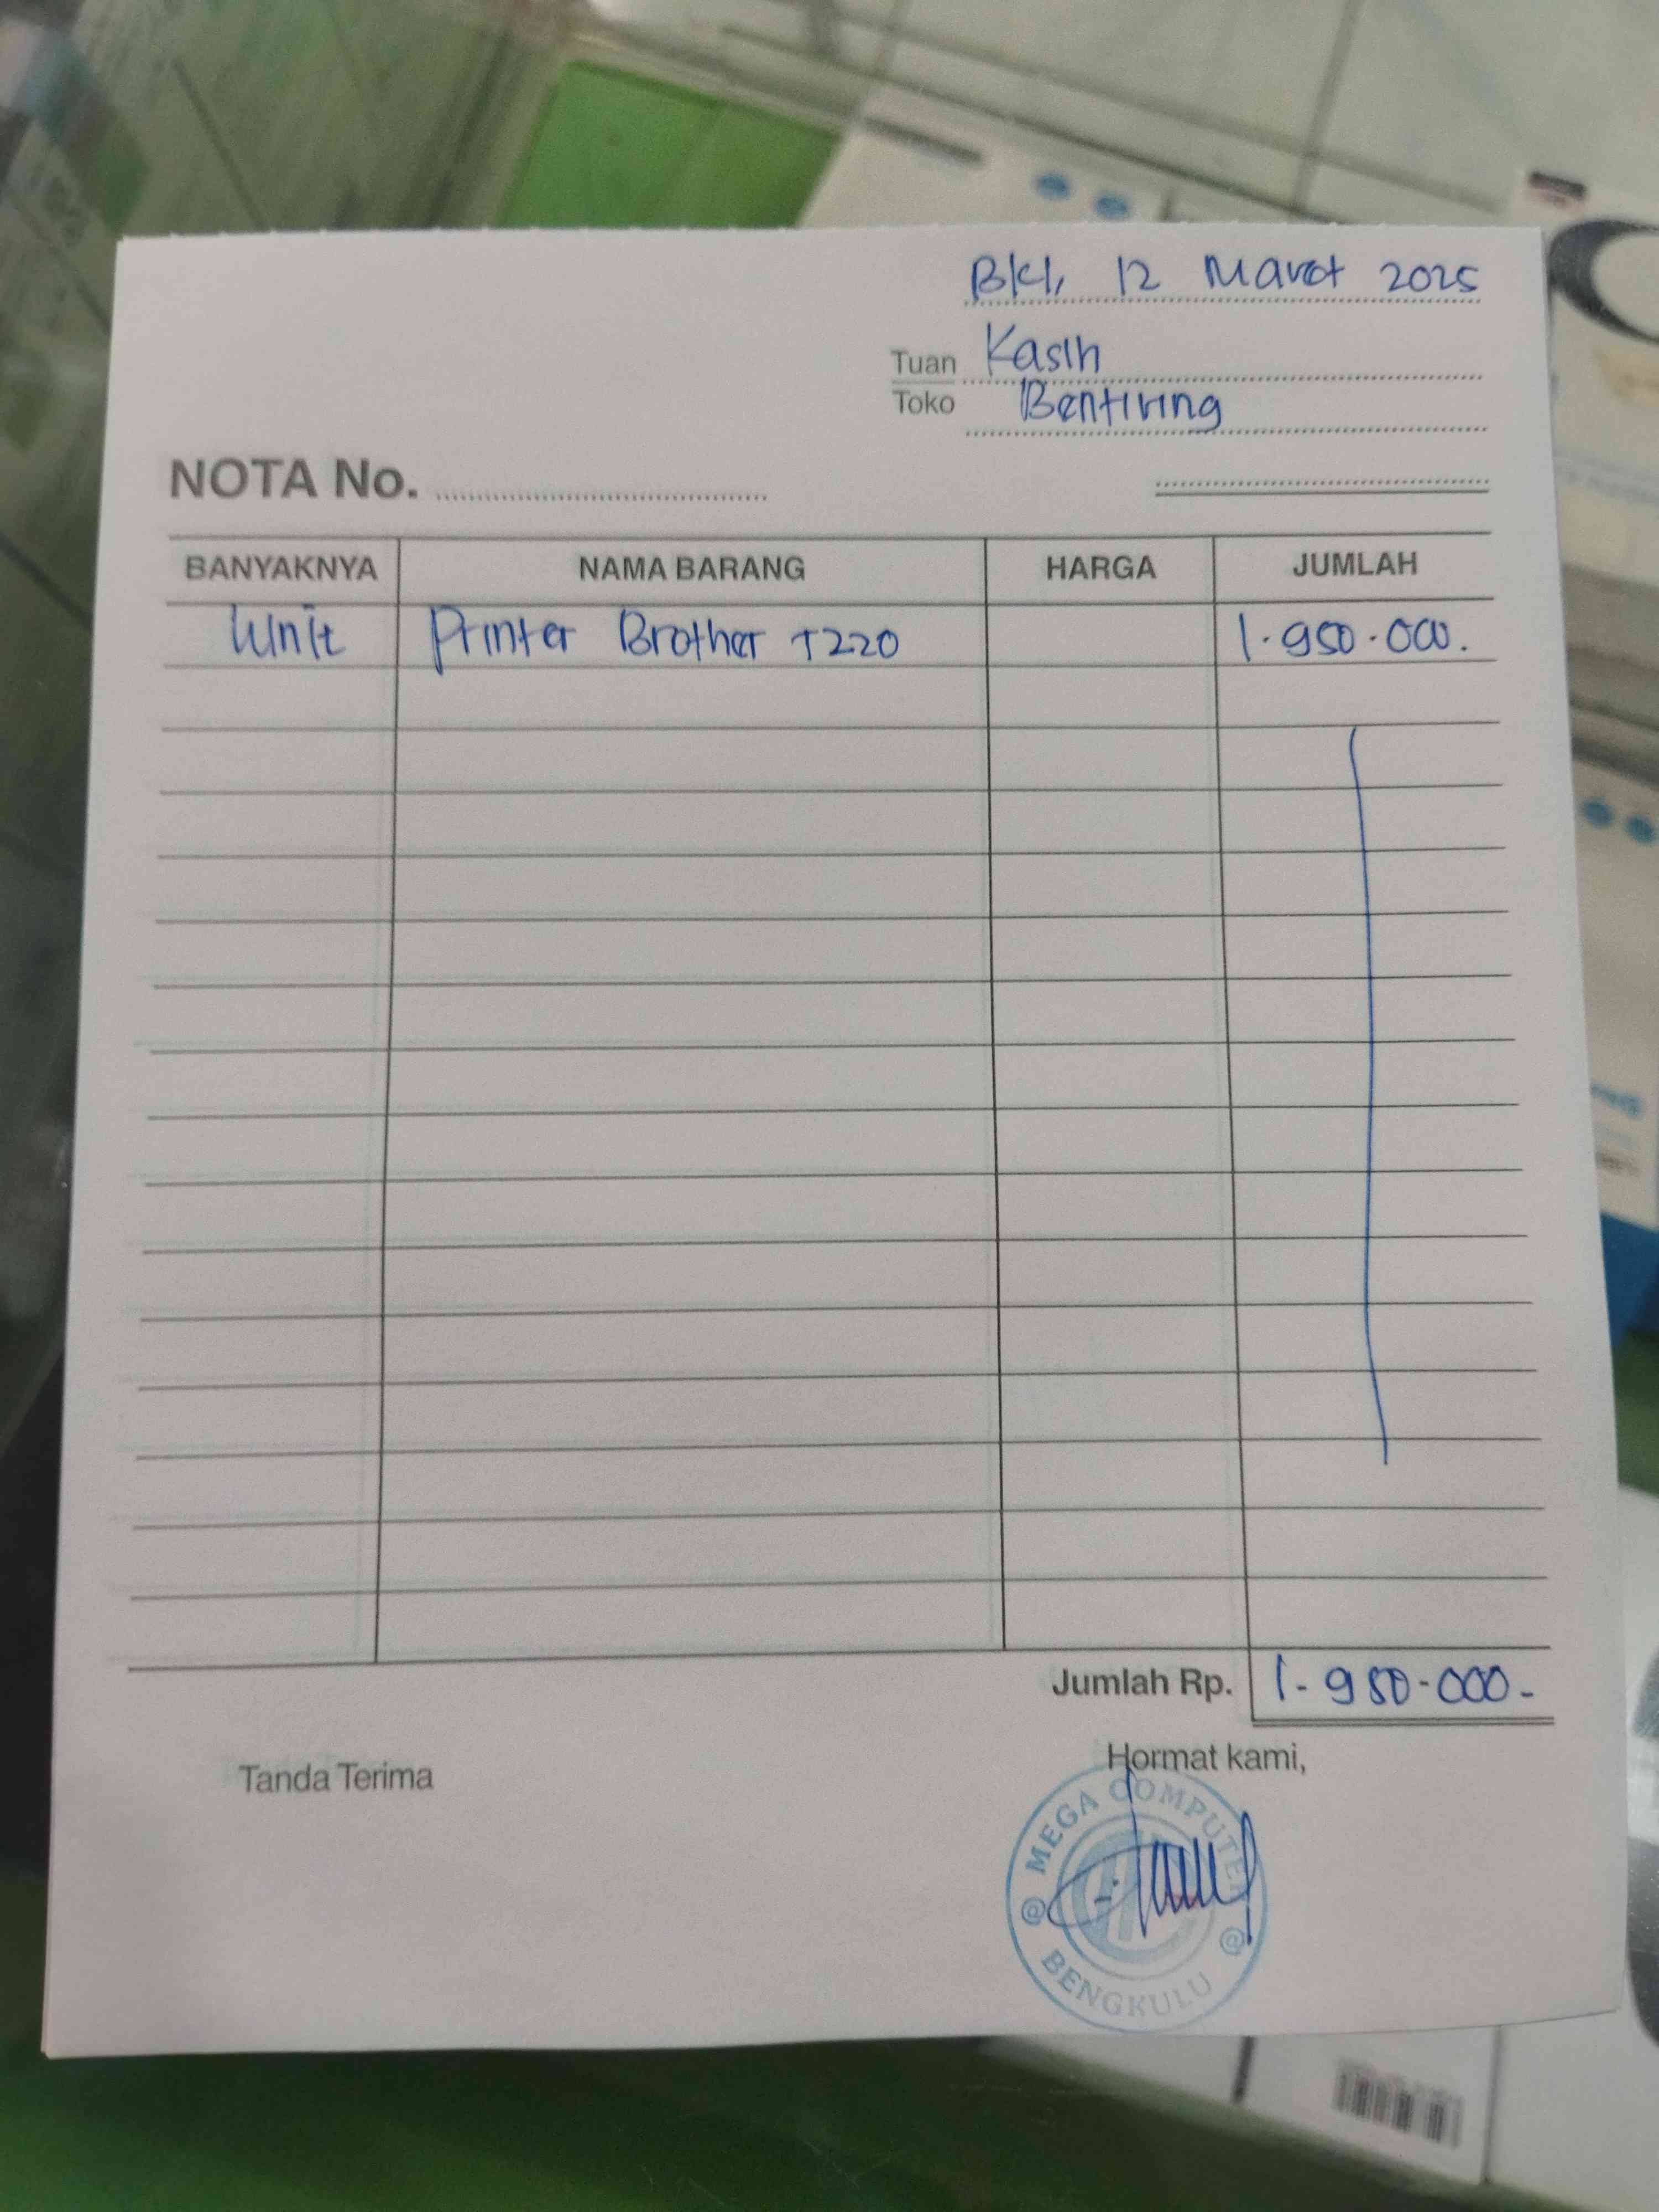 Bkl, 12 Maret 2025
Tuan Kasih
Toko Bentiring
NOTA No.
BANYAKNYA NAMA BARANG HARGA JUMLAH
1 Unit Printer Brother T220 1.950.000.
Jumlah Rp. 1.950.000.-
Tanda Terima Hormat kami,
MEGA COMPUTER
@ @
BENGKULU